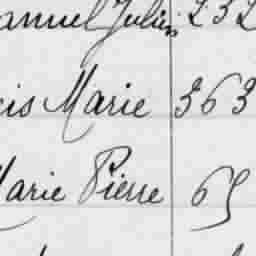 anuel Julien 232
is Marie 363
Marie Pierre 65